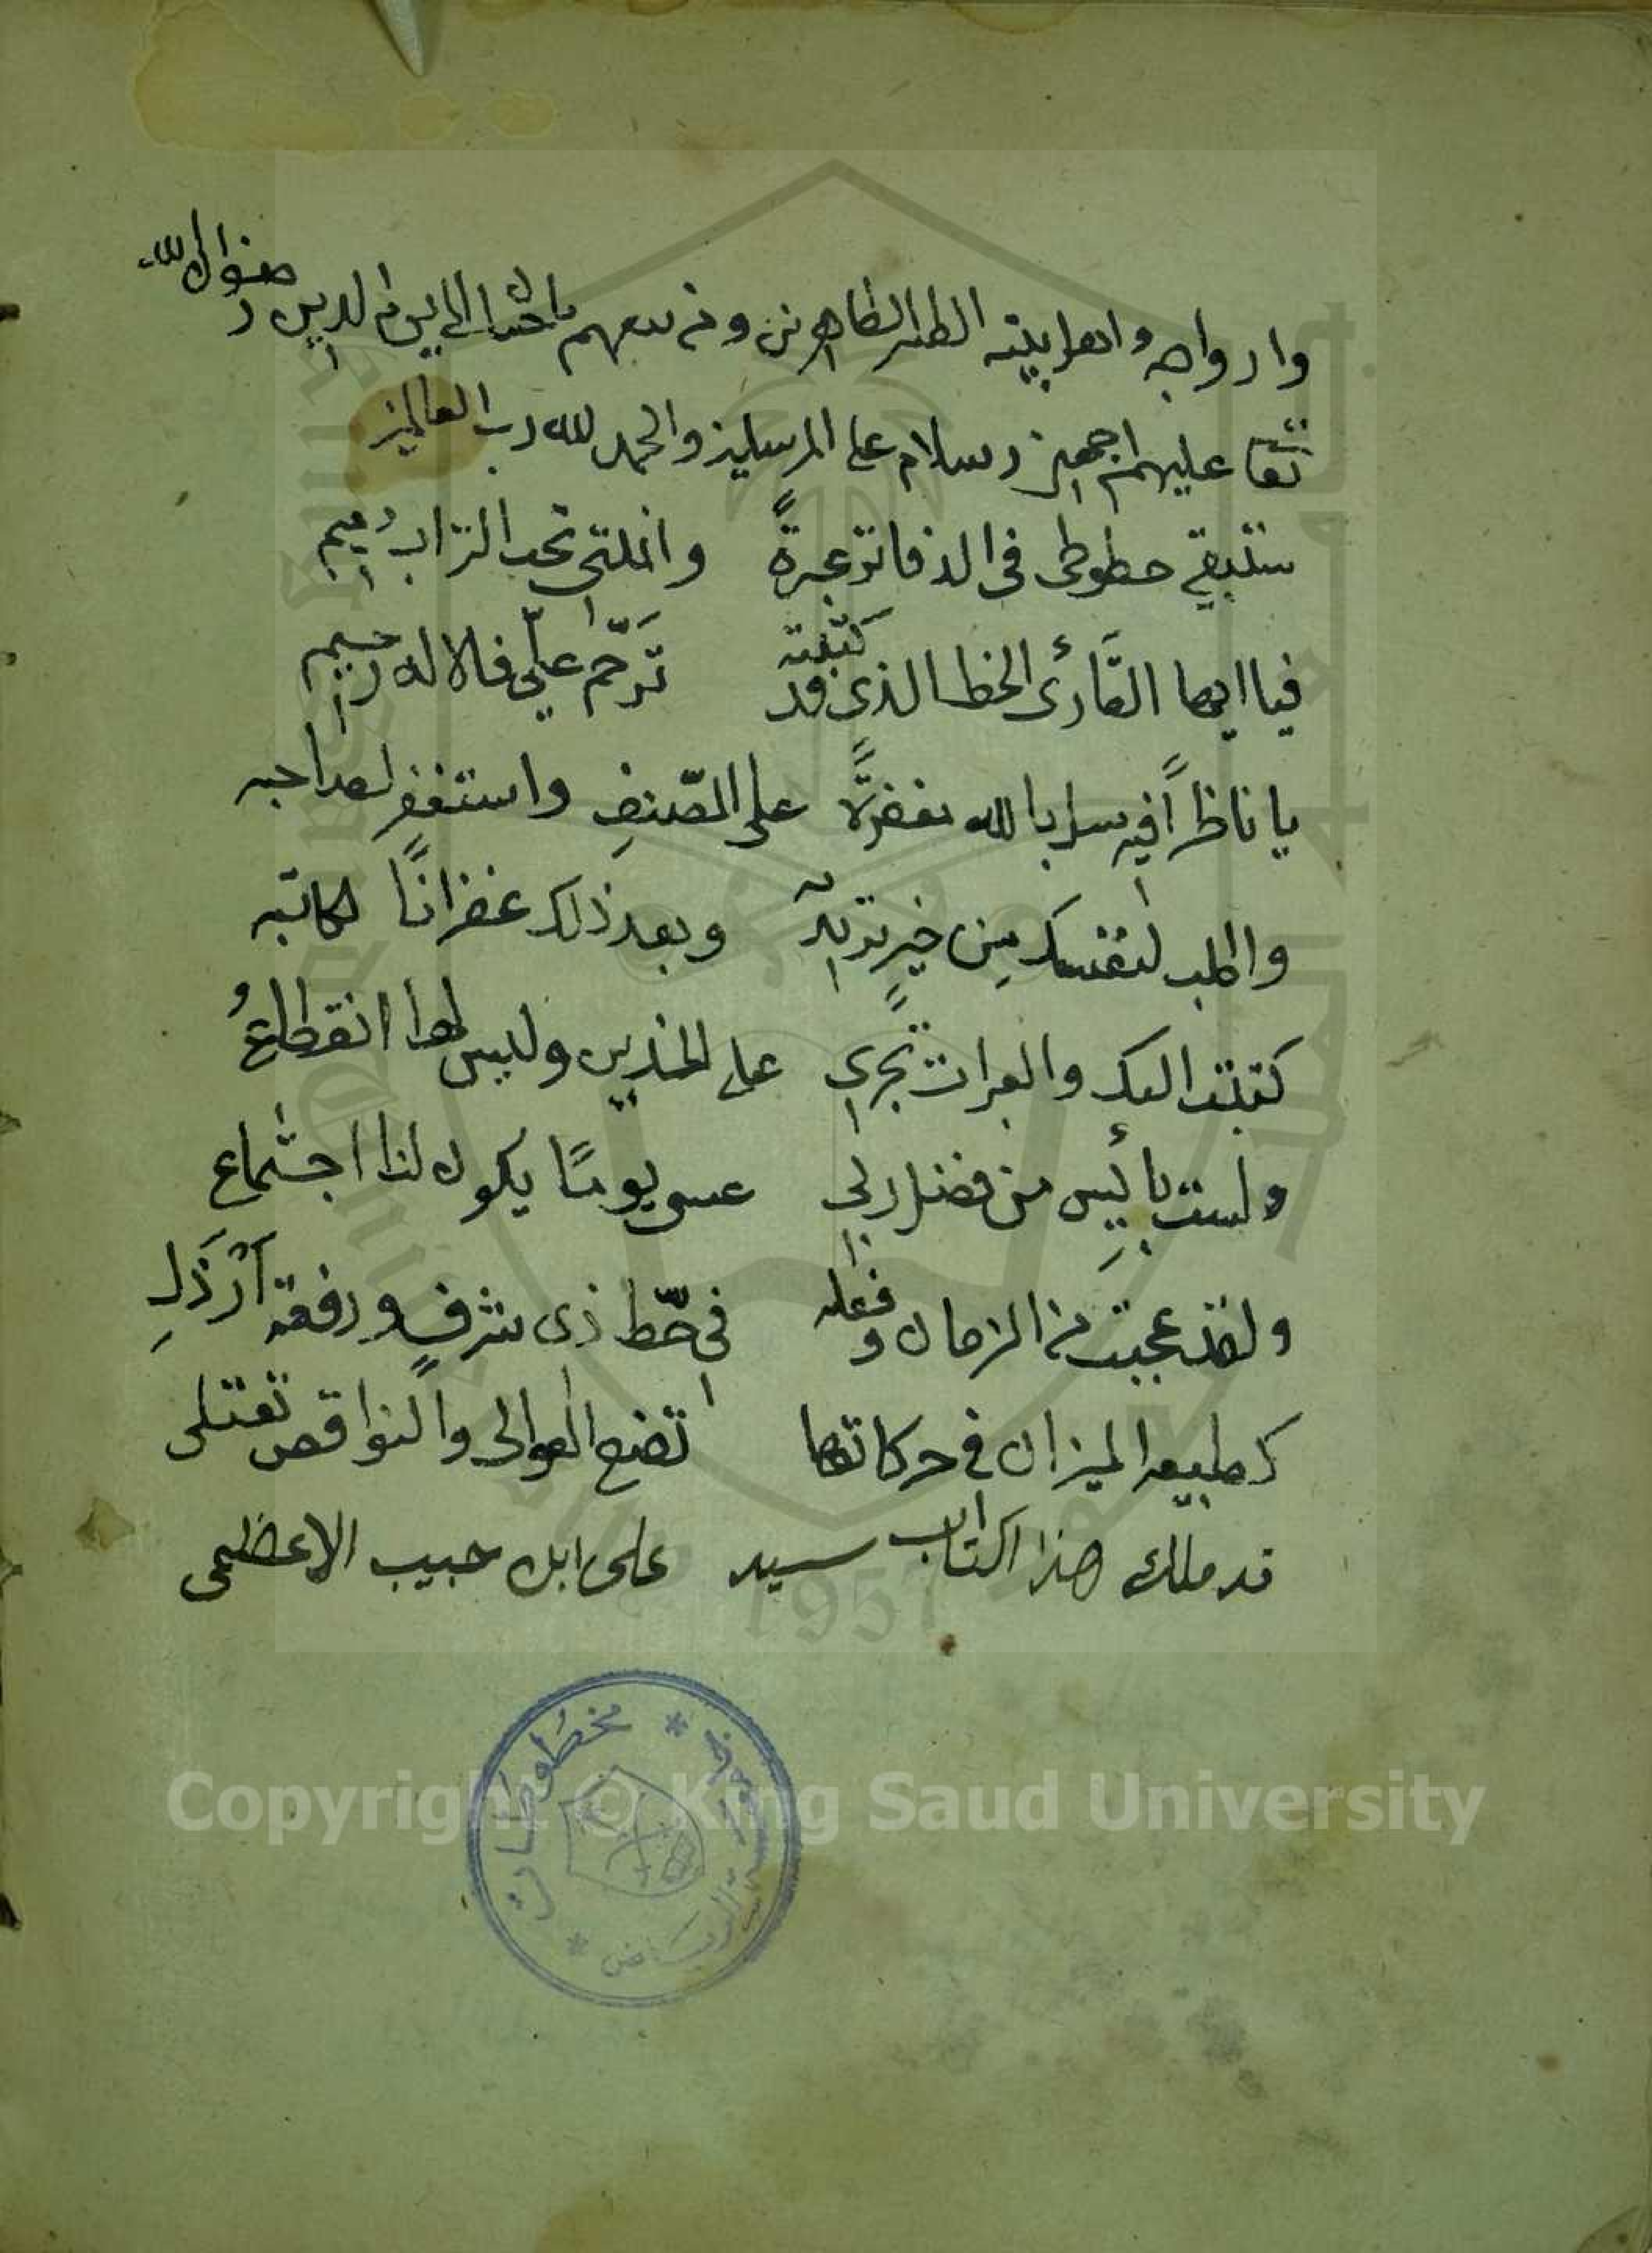 وازواجه واهل بيته الطيبين الطاهرين ومن تبعهم باحسان الى يوم الدين رضوان الله
تعا عليهم اجمعين وسلام على المرسلين والحمد لله رب العالمين
ستبقى خطوطي في الدفاتر عبرةً وانملتي تحت التراب رميم
فيا ايها القارئ الخط الذي قد كتبته ترحّم عليّ فالاله رحيم
يا ناظراً فيه سل بالله مغفرةً على المصنفِ واستغفر لصاحبه
واطلب لنفسك مِن خيرٍ تريد وبعد ذلك غفرانًا لكاتبه
كتبت اليك والعبرات تجري على الخدين وليس لها انقطاعُ
ولست بائسٍ من فضل ربي عسى يومًا يكون لنا اجتماع
ولقد عجبت من الزمان وفعله في حطّ ذي شرفٍ ورفعة اَرْذَلِ
كطبيعه الميزان في حركاتها تضع العوالي والنواقص تعتلى
قد ملك هذا الكتاب سيد على ابن حبيب الاعظمى
مخطوطات * جامعة الرياض *
Copyright © King Saud University
1957